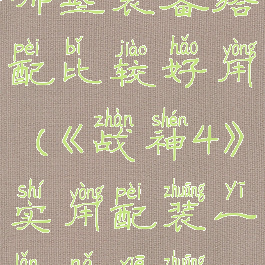 装备
pèi bǐ jiào hǎo yòng
配比较好用
zhàn shén
（《战神4》
shí yòng pèi zhuāng yī
实用配装一